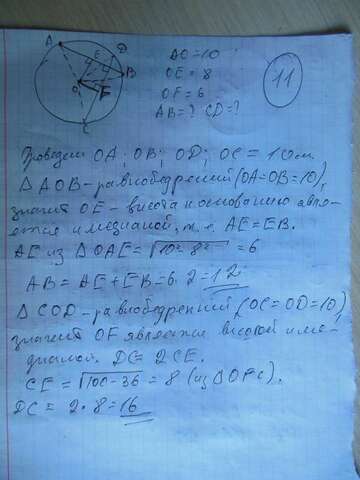 A
E
D
B
O
F
C
AO=10
OE=8
OF=6
AB=? CD=?
11
Проведем OA; OB; OD; OC = 10см.
△AOB-равнобедренный (OA=OB=10),
значит OE-высота к основанию явля-
ется и медианой, т.е. AE=EB.
AE из △OAE=√10²-8² =6
AB = AE+EB=6·2=12
△COD-равнобедренный (OC=OD=10),
значит OF является высотой и ме-
дианой. DC=2CE.
CE=√100-36 = 8 (из △OFC).
DC = 2·8=16